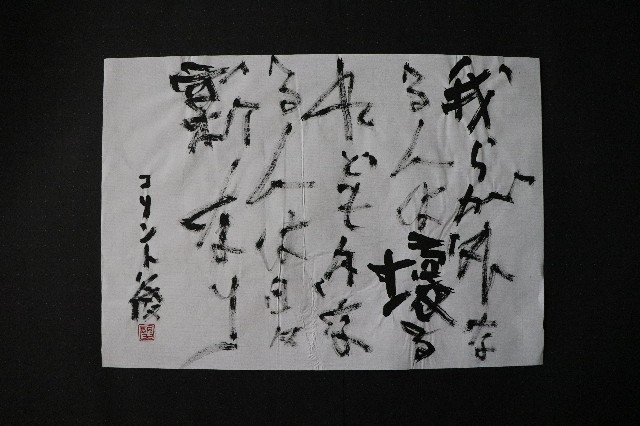 我らが外な
る人は壊る
れども内な
る人は日々
新なり
コリント後